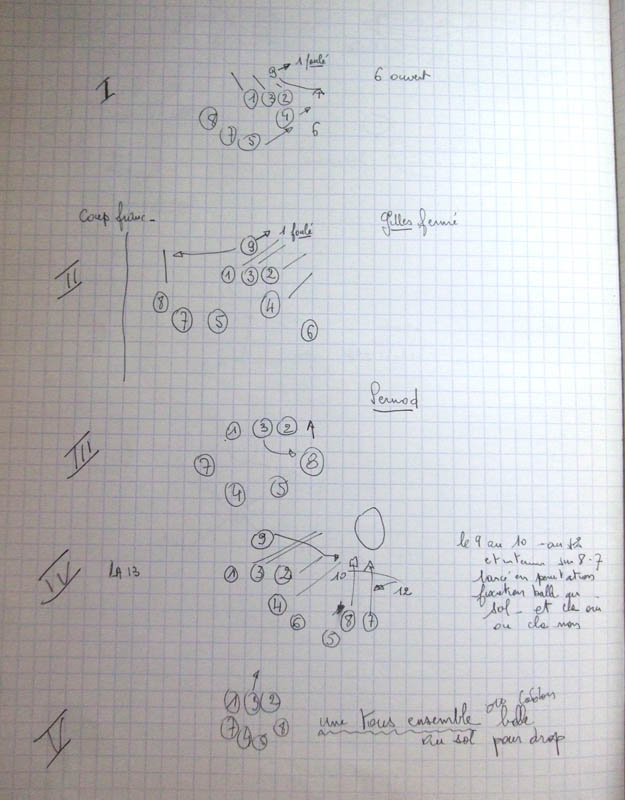 I
9 1 foulé
6 ouvert
1 3 2
8 4
7 5 6
Coup franc -
Gilles fermé
II
9 1 foulé
1 3 2
8 4
7 5 6
Pernod
III
1 3 2
7 8
4 5
IV
LA 13
9
1 3 2 10
12
4
6 8 7
5
le 9 au 10 - au 12
et interne sur 8-7
lancé en pénétration
fixation balle au
sol - et cla oui
ou cla non
V
1 3 2
7 8
4 5
une tous ensemble
balle
au sol pour drop